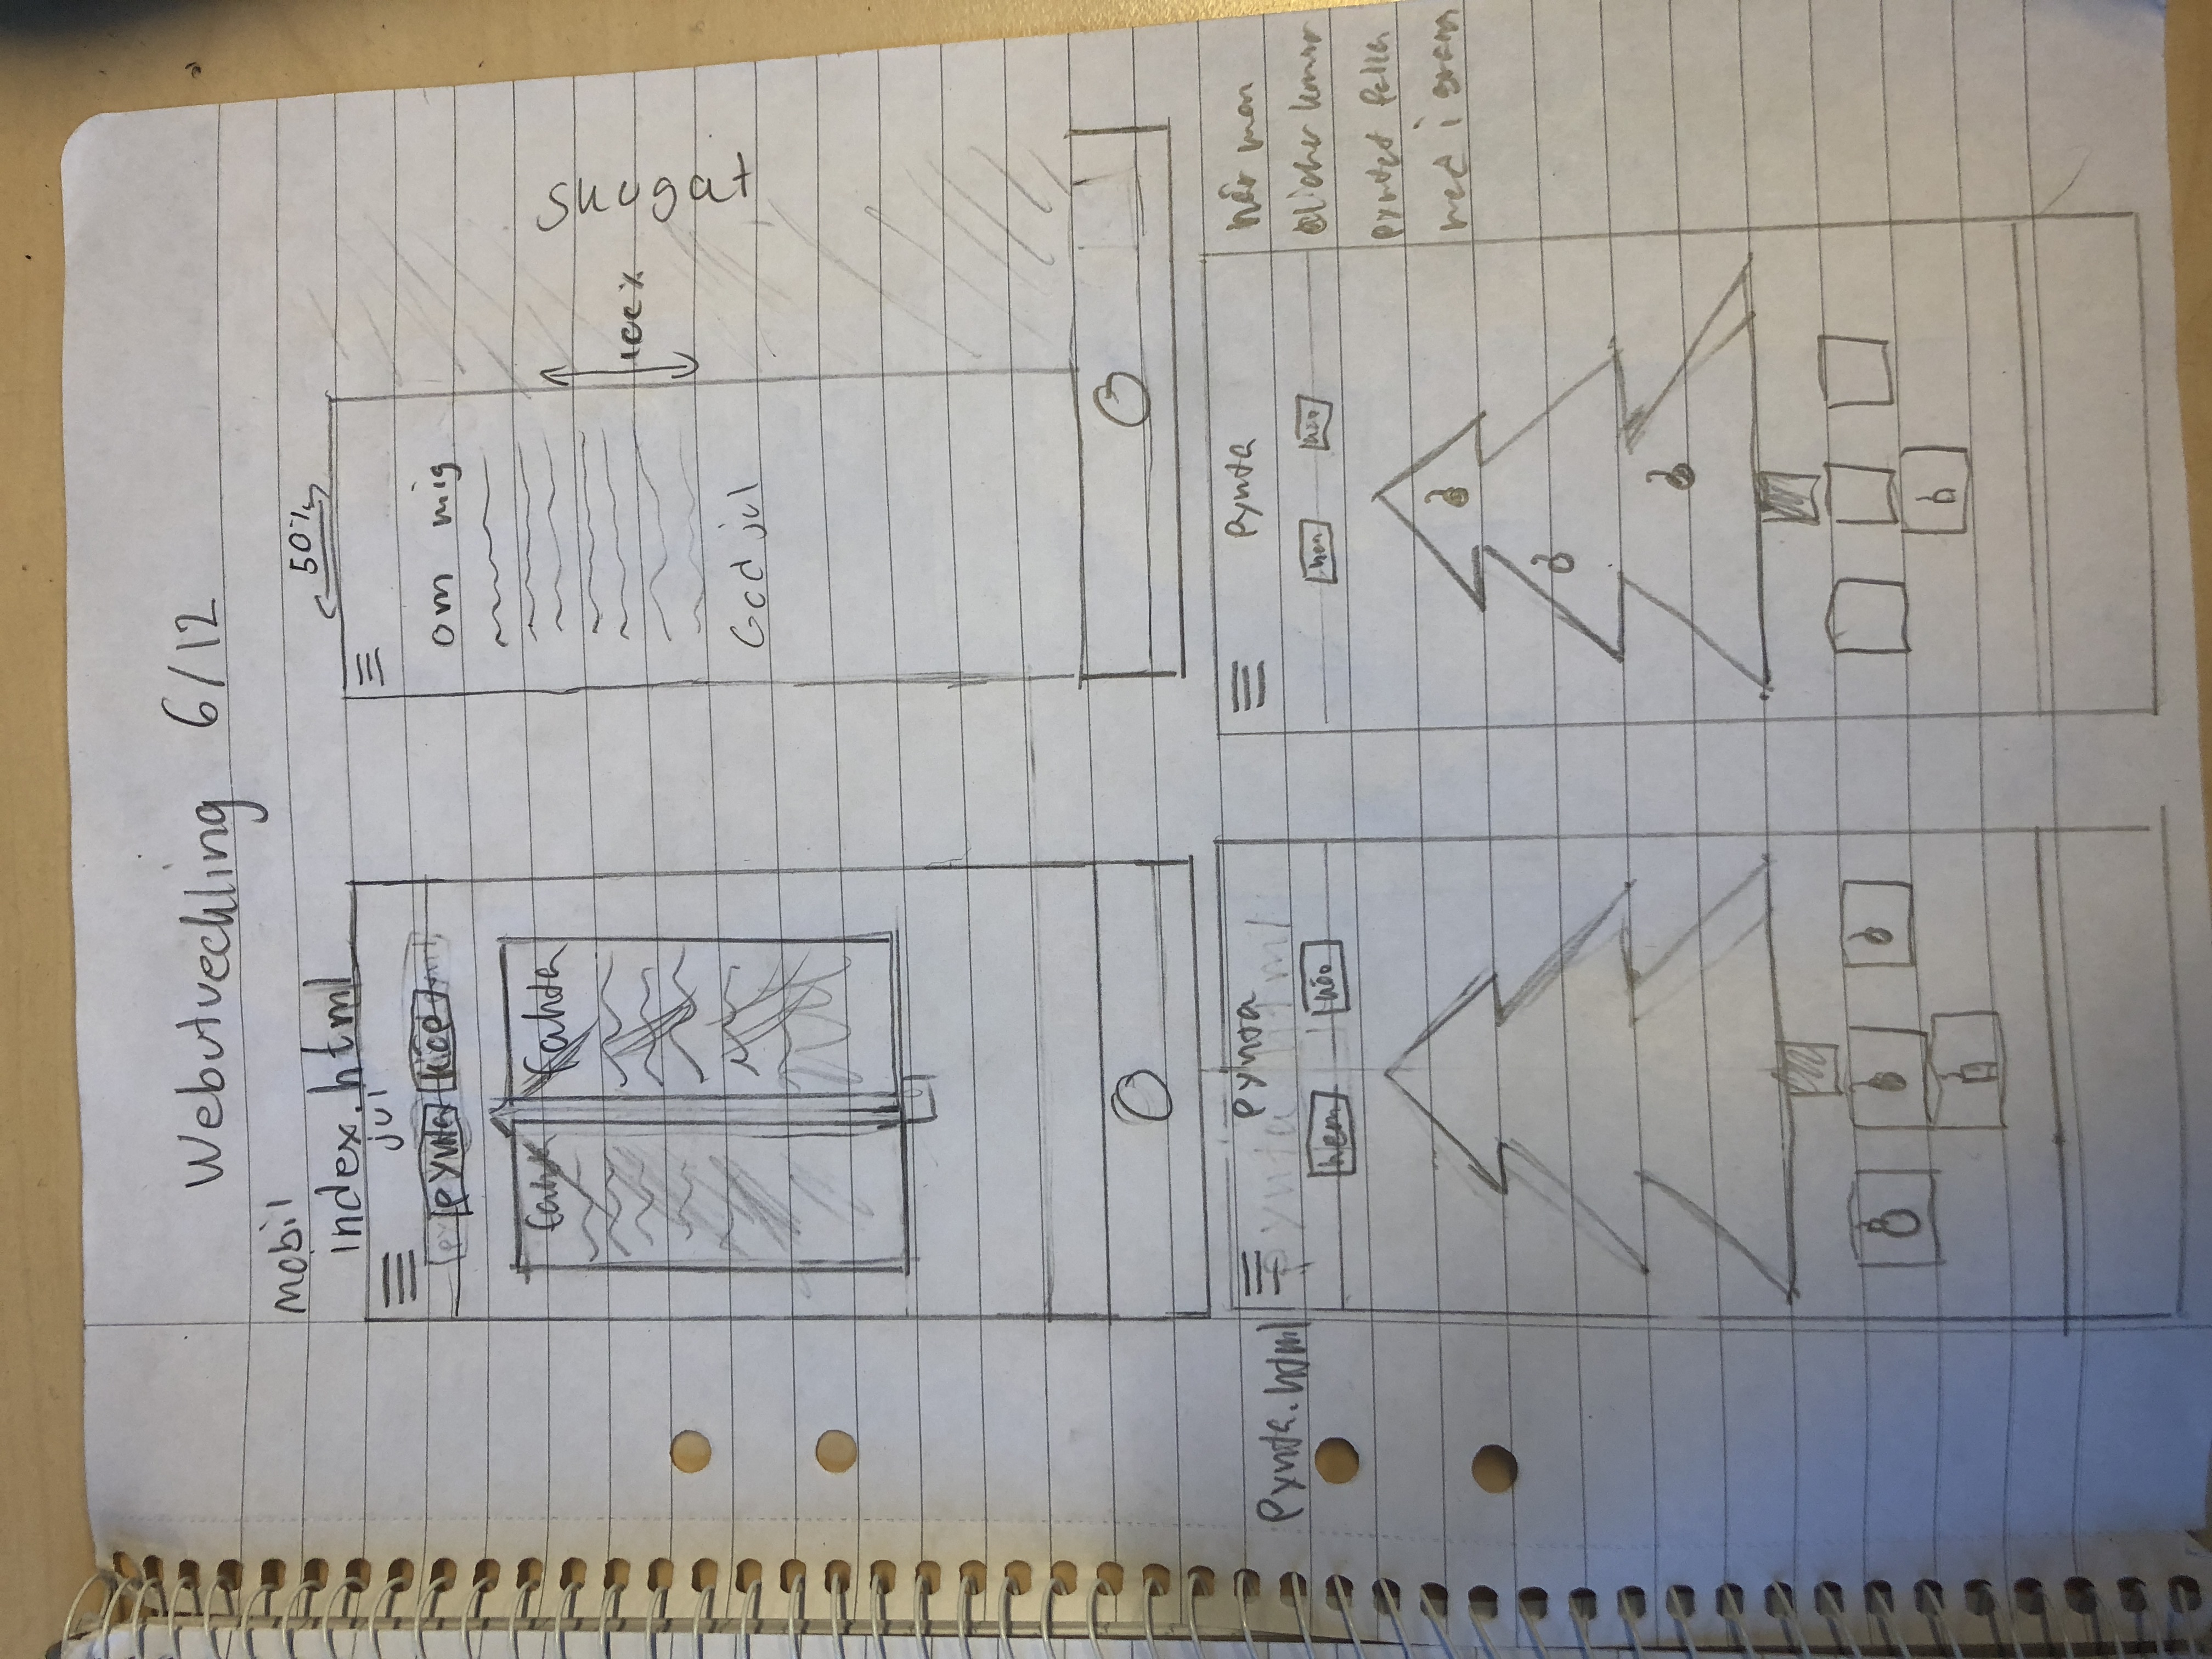 Webutveckling 6/12
mobil
index.html
jul
pynta köp
fakta fakta
50%
om mig
100%
God jul
Skugat
Pynta.html
pynta
pynta html
hem köp
Pynta
hem köp
När man
clicker kommer
pyntet falla
ned i granen